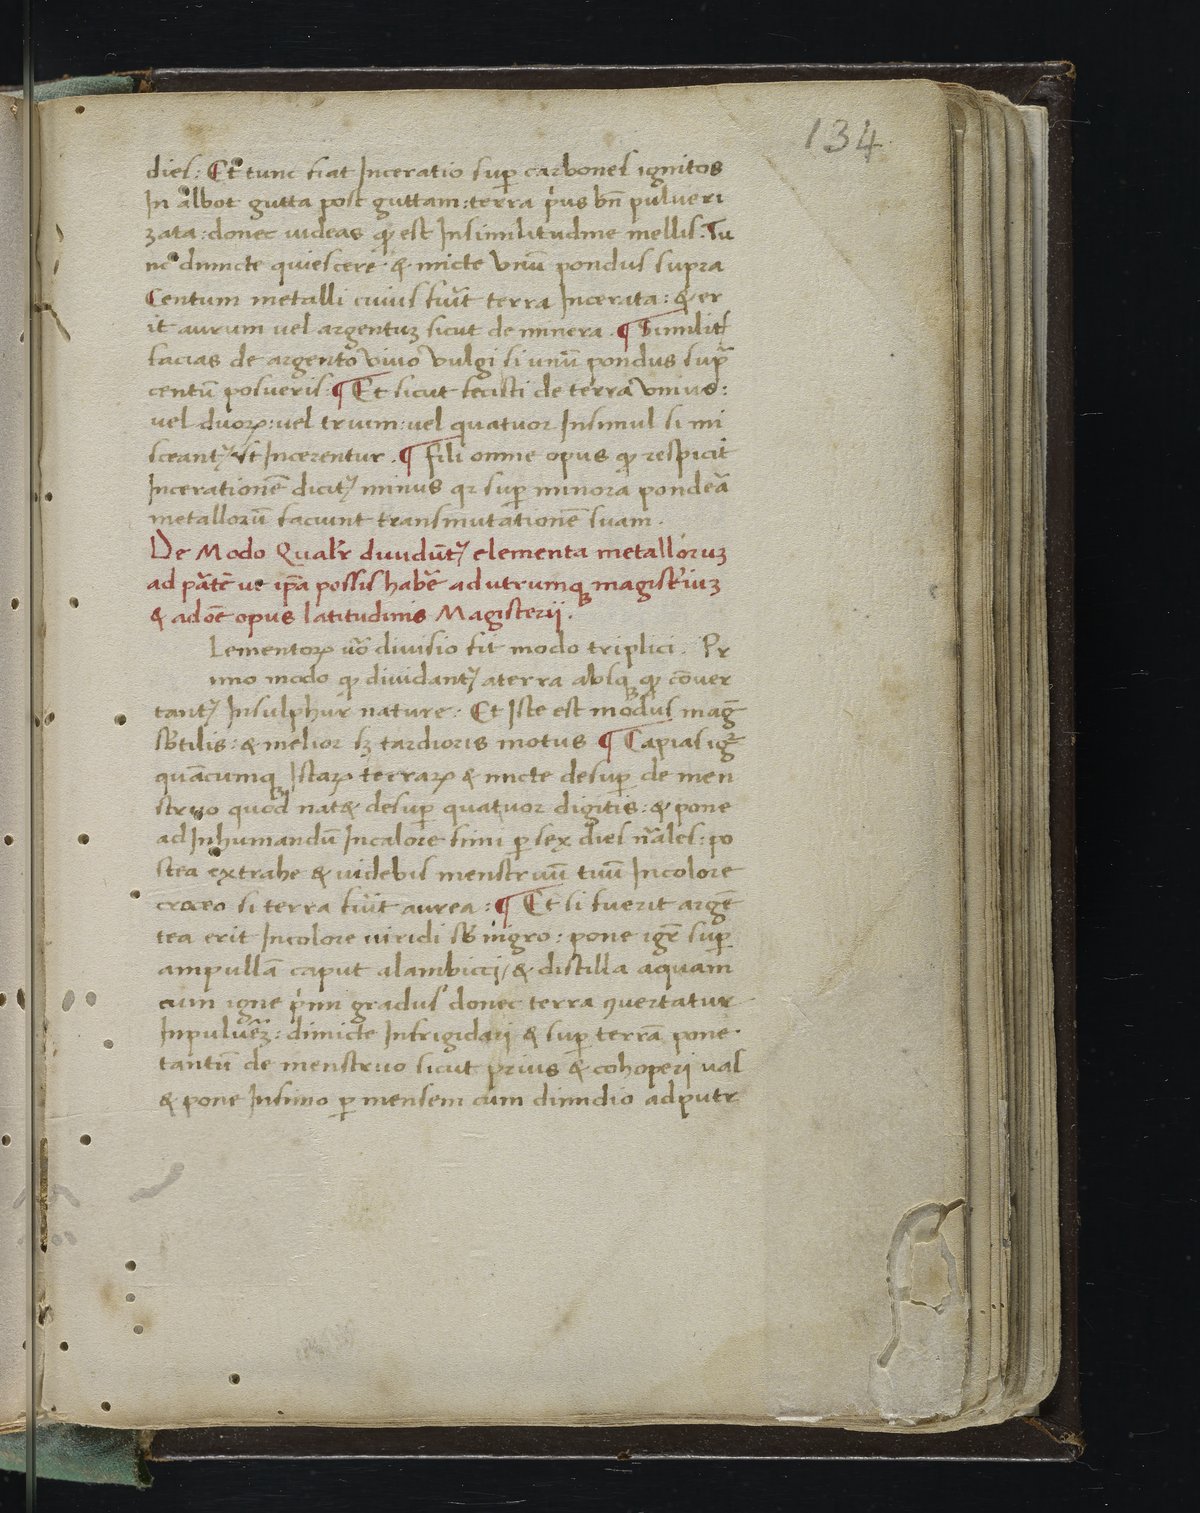 134
dies: Et tunc fiat Inceratio sup̱ carbones ignitos
In albot gutta post guttam: terra p̍us bñ pulueri
zata: donec uideas qꝫ est Insimilitudine mellis. Tu
nc dimicte quiescere · & micte vnū pondus supra
Centum metalli cuius fu̍it terra Incerata: & er
it aurum uel argentuꝫ sicut de minera. ¶ Similit̍
facias de argento vivo vulgi si unū pondus sup̃
centū posueris: ¶ Et sicut fecisti de terra vnius:
vel duoꝝ: vel trium: vel quatuor Insimul si mi
sceant᷑ ut Incerentur. ¶ fili omne opus qꝫ respicit
Incerationē dicit᷑ minus qꝛ sup̱ minora pondeā
metallorū faciunt transmutationē suam.
De Modo Qualr̍ diuidūt᷑ elementa metalloruꝫ
ad p̄atē ut ip̄a possis hab̄e ad utrumqꝫ magist̍iuꝫ
& ad oē opus latitudinis Magisterij.
Lementoꝝ uō divisio fit modo triplici. Pr
imo modo qꝫ dividant᷑ aterra absqꝫ qꝫ cōuer
tant᷑ Insulphur nature: Et Iste est modus mag̃
sb̍tilis: & melior sꝫ tardioris motus ¶ Capias ig̃
quācumqꝫ Istaꝝ terraꝝ & micte desup̱ de men
struo quod nat& desup̱ quatuor digitis: & pone
ad Inhumandū Incalore fimi p̱ sex dies nãles: po
stea extrahe & uidebis menstruū tuū Incolore
croceo si terra fu̍it aurea: ¶ Et si fuerit argē
tea erit Incolore uiridi sb̍ nigro: pone igr̄ sup̱
ampullā caput alambicci, & distilla aquam
cum igne p̍mi gradus donec terra ꝯuertatur
Inpulu̍eꝫ: dimicte Infrigidarj & sup̱ terrā pone
tantū de menstruo sicut prius & cohoperj uas
& pone Infimo p̱ mensem cum dimidio adputr